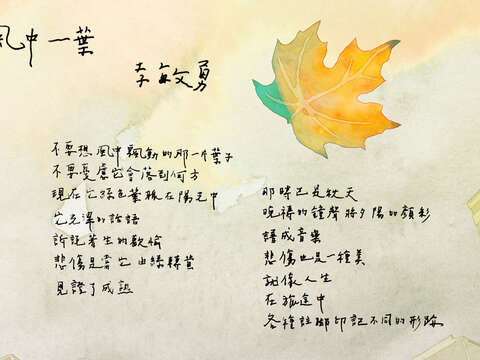 風中一葉
李敏勇
不要想風中飄動的那一片葉子
不要憂慮它會落到何方
現在它綠色葉脈在陽光中
它光澤的話語
訴說著生的歡愉
悲傷是當它由綠轉黃
見證了成熟
那時已是秋天
晚禱的鐘聲將夕陽的顏彩
譜成音樂
悲傷也是一種美
就像人生
在旅途中
各種註腳印記不同的形跡